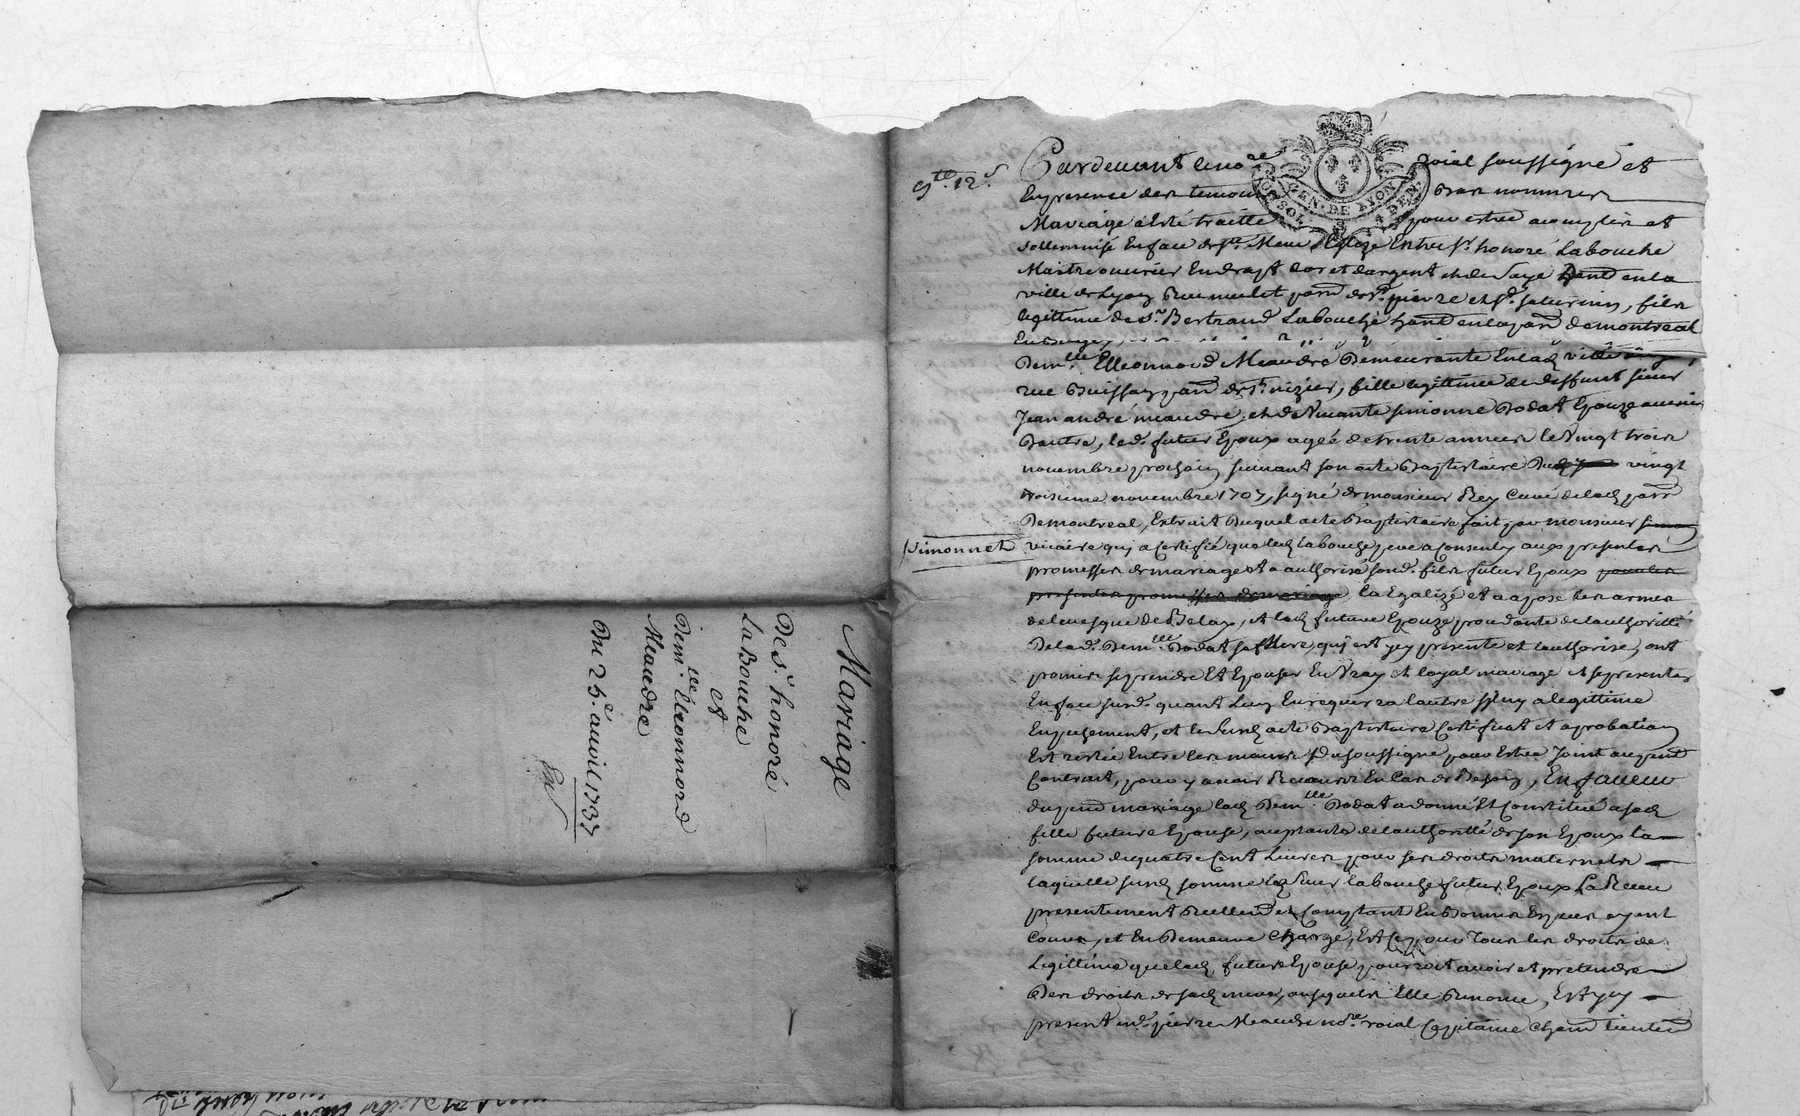 Mariage
De Sr. honoré
La Bouche
et
Demlle. Eleonnord
Meaudre
Du 25e. auvil 1737
gte. 12 s
Pardevant le nore roial soussigné et
En presence des temoins bas nommes
Mariage a Esté traitté pour estre acomplis et
sollemnisé En face de ste. Mere Eglize Entre sr. honoré Labouche
Maitre ouvrier En drapt d'or et d'argent et de soye hant. en la
ville de Lyon Rue mulet parr. de st. pierre et st. saturnin, fils
legittime de sr. Bertrand Labouche hant en la parr. de montreal
En Bugey,
Demlle. Elleonnord Meaudre Demeurante En lad. ville
rue Buisson parr. de st. nizier, fille legittime de deffunt sieur
Jean andré meaudre, et de vivante simonne Dodat
D'autre, led. futur Epoux agée de trente annees le vingt trois
novembre prochain suivant son acte Baptistaire Du vingt
troisieme novembre 1707, signé de monsieur Rey Curé de lad. parr.
De montreal, Extrait Duquel acte Baptistaire fait par monsieur
Simonnet
vicaire qui a Certifié que led. labouche pere a Consenty aux presentes
promesses de mariage et a authorisé sond. fils futur Epoux pour les
presentes promesses de mariage la Egalizé et a apose les armes
de levesque de Belay, et lad. future Epouze procedante de lauthoritté
De lad. Demlle. Dodat sa Mere, qui est ycy presente et lauthorise, ont
promis se prendre Et Epouser En vray et loyal mariage et se presenter
En face susd. quant Lun En requerra lautre sil ny a legittime
Enpechement, et le susd. acte Baptistaire Certificat et aprobation
Est restée Entre les mains Du soussigné pour Estre Joint au prest.
Contrat, pour y avoir Recours En Cas de Besoin, En faveur
du prest. mariage lad. Demlle. Dodat a donné Et Constitué a sad.
fille future Epouse, acceptante de lauthoritté de son Epoux la
somme de quatre Cent Livres pour ses droits maternels
laquelle susd. somme led. sieur labouche futur Epoux La Receu
presentement Reellemt. et Comptant En bonnes Especes ayent
Cours, et En Demeure Chargé, Est Ce pour Tous les droits de
Legittime que lad. future Epouse pourroit avoir et pretendre
Des droits de sad. mere, ausquels Elle Renonce, Est ycy
present me. pierre Meaudre nore. roial Capitaine Chatn. Lieutent.